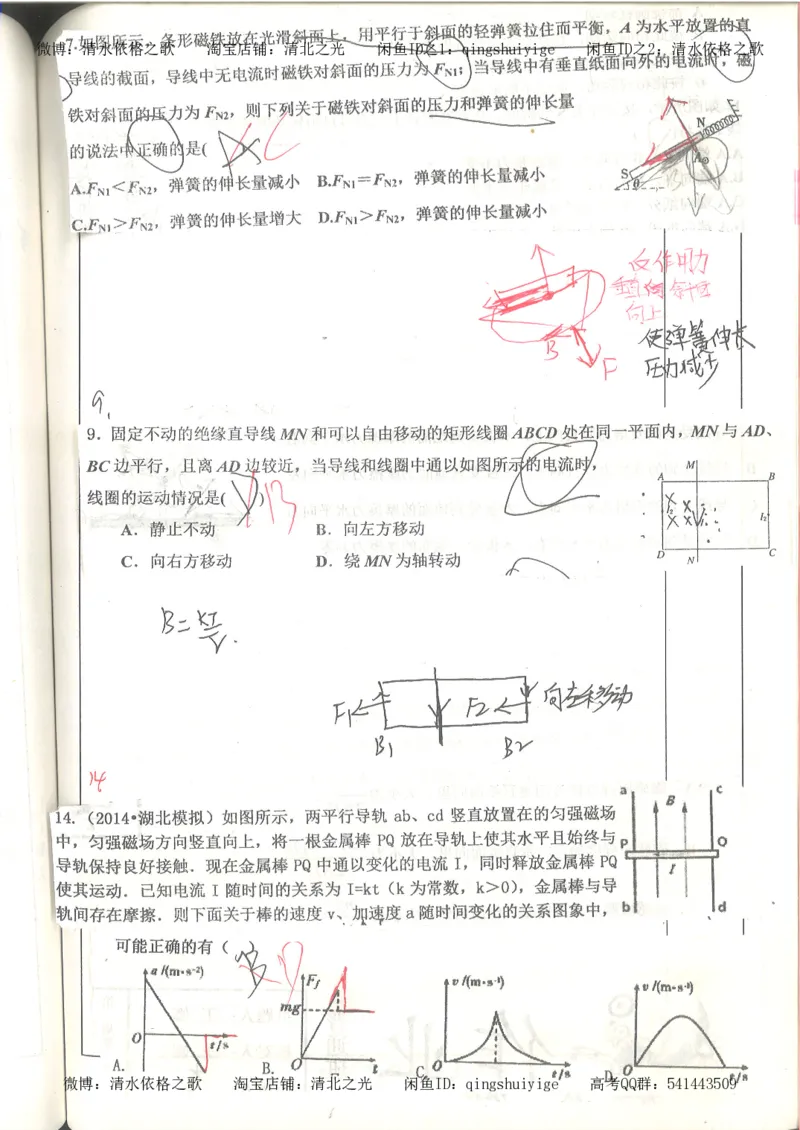 7.如图所示，条形磁铁放在光滑斜面上，用平行于斜面的轻弹簧拉住而平衡，A为水平放置的直
微博：清水依格之歌 淘宝店铺：清北之光 闲鱼ID之1：qingshuiyige 闲鱼ID之2：清水依格之歌
导线的截面，导线中无电流时磁铁对斜面的压力为 FN1；当导线中有垂直纸面向外的电流时，磁
铁对斜面的压力为 FN2，则下列关于磁铁对斜面的压力和弹簧的伸长量
的说法中正确的是( C
A.FN1＜FN2，弹簧的伸长量减小 B.FN1＝FN2，弹簧的伸长量减小
C.FN1＞FN2，弹簧的伸长量增大 D.FN1＞FN2，弹簧的伸长量减小
N
A
S
θ
反作用力
垂直向斜面
向上
使弹簧伸长
压力减少
B
F
9.
9．固定不动的绝缘直导线 MN 和可以自由移动的矩形线圈 ABCD 处在同一平面内，MN 与 AD、
BC 边平行，且离 AD 边较近，当导线和线圈中通以如图所示的电流时，
线圈的运动情况是( ) B
A．静止不动 B．向左方移动
C．向右方移动 D．绕 MN 为轴转动
A M B
I2
D N C
B=KI/r.
F1 F2 向左移动
B1 B2
14
14.（2014•湖北模拟）如图所示，两平行导轨 ab、cd 竖直放置在的匀强磁场
中，匀强磁场方向竖直向上，将一根金属棒 PQ 放在导轨上使其水平且始终与
导轨保持良好接触．现在金属棒 PQ 中通以变化的电流 I，同时释放金属棒 PQ
使其运动．已知电流 I 随时间的关系为 I=kt（k 为常数，k＞0），金属棒与导
轨间存在摩擦．则下面关于棒的速度 v、加速度 a 随时间变化的关系图象中，
可能正确的有（
a B c
P Q
I
b d
a/(m•s-2) Ff v/(m•s-1) v/(m•s-1)
mg
O t/s O t O t/s O t/s
A. B. C. D.
微博：清水依格之歌 淘宝店铺：清北之光 闲鱼ID：qingshuiyige 高考QQ群：541443509